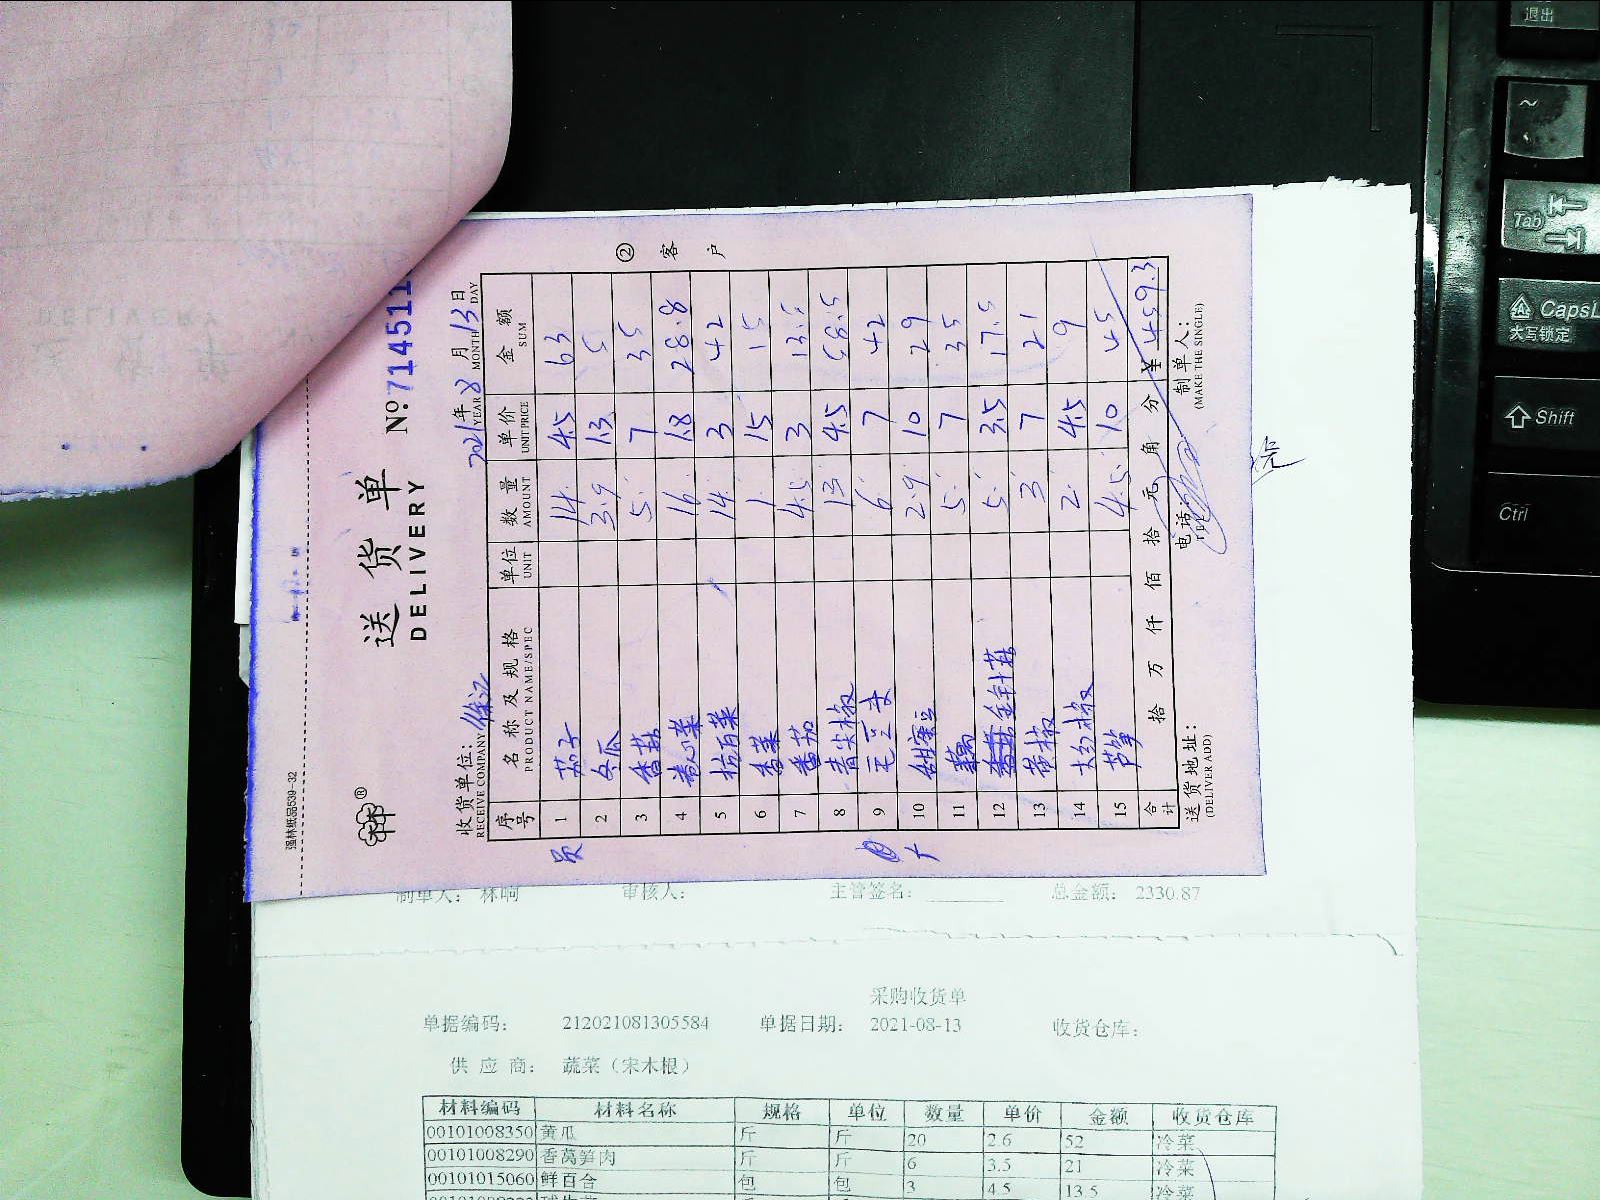 强林纸品539-32
送货单
DELIVERY
№ 714511
收货单位: RECEIVE COMPANY
2021年 YEAR 8 月 MONTH 13 日 DAY
序号 名称及规格 PRODUCT NAME/SPEC 单位 UNIT 数量 AMOUNT 单价 UNIT PRICE 金额 SUM
1 茄子 14 4.5 63
2 冬瓜 3.9 1.3 5
3 香菇 5 7 35
4 卷心菜 16 1.8 28.8
5 杭白菜 14 3 42
6 香菜 1 15 15
7 番茄 4.5 3 13.5
8 青尖椒 13 4.5 58.5
9 毛豆夹 6 7 42
10 甜蜜豆 2.9 10 29
11 藕 5 7 35
12 金针菇 5 3.5 17.5
13 黄椒 3 7 21
14 大红椒 2 4.5 9
15 芦笋 4.5 10 45
合计 拾 万 仟 佰 拾 元 角 分 ¥ 459.3
送货地址: (DELIVER ADD) 电话: 制单人: (MAKE THE SINGLE)
② 客户
制单人: 林响 审核人: 主管签名: 总金额: 2330.87
采购收货单
单据编码: 212021081305584 单据日期: 2021-08-13 收货仓库:
供应商: 蔬菜(宋木根)
材料编码 材料名称 规格 单位 数量 单价 金额 收货仓库
00101008350 黄瓜 斤 斤 20 2.6 52 冷菜
00101008290 香莴笋肉 斤 斤 6 3.5 21 冷菜
00101015060 鲜百合 包 包 3 4.5 13.5 冷菜
退出
~
Tab
CapsL
大写锁定
Shift
Ctrl